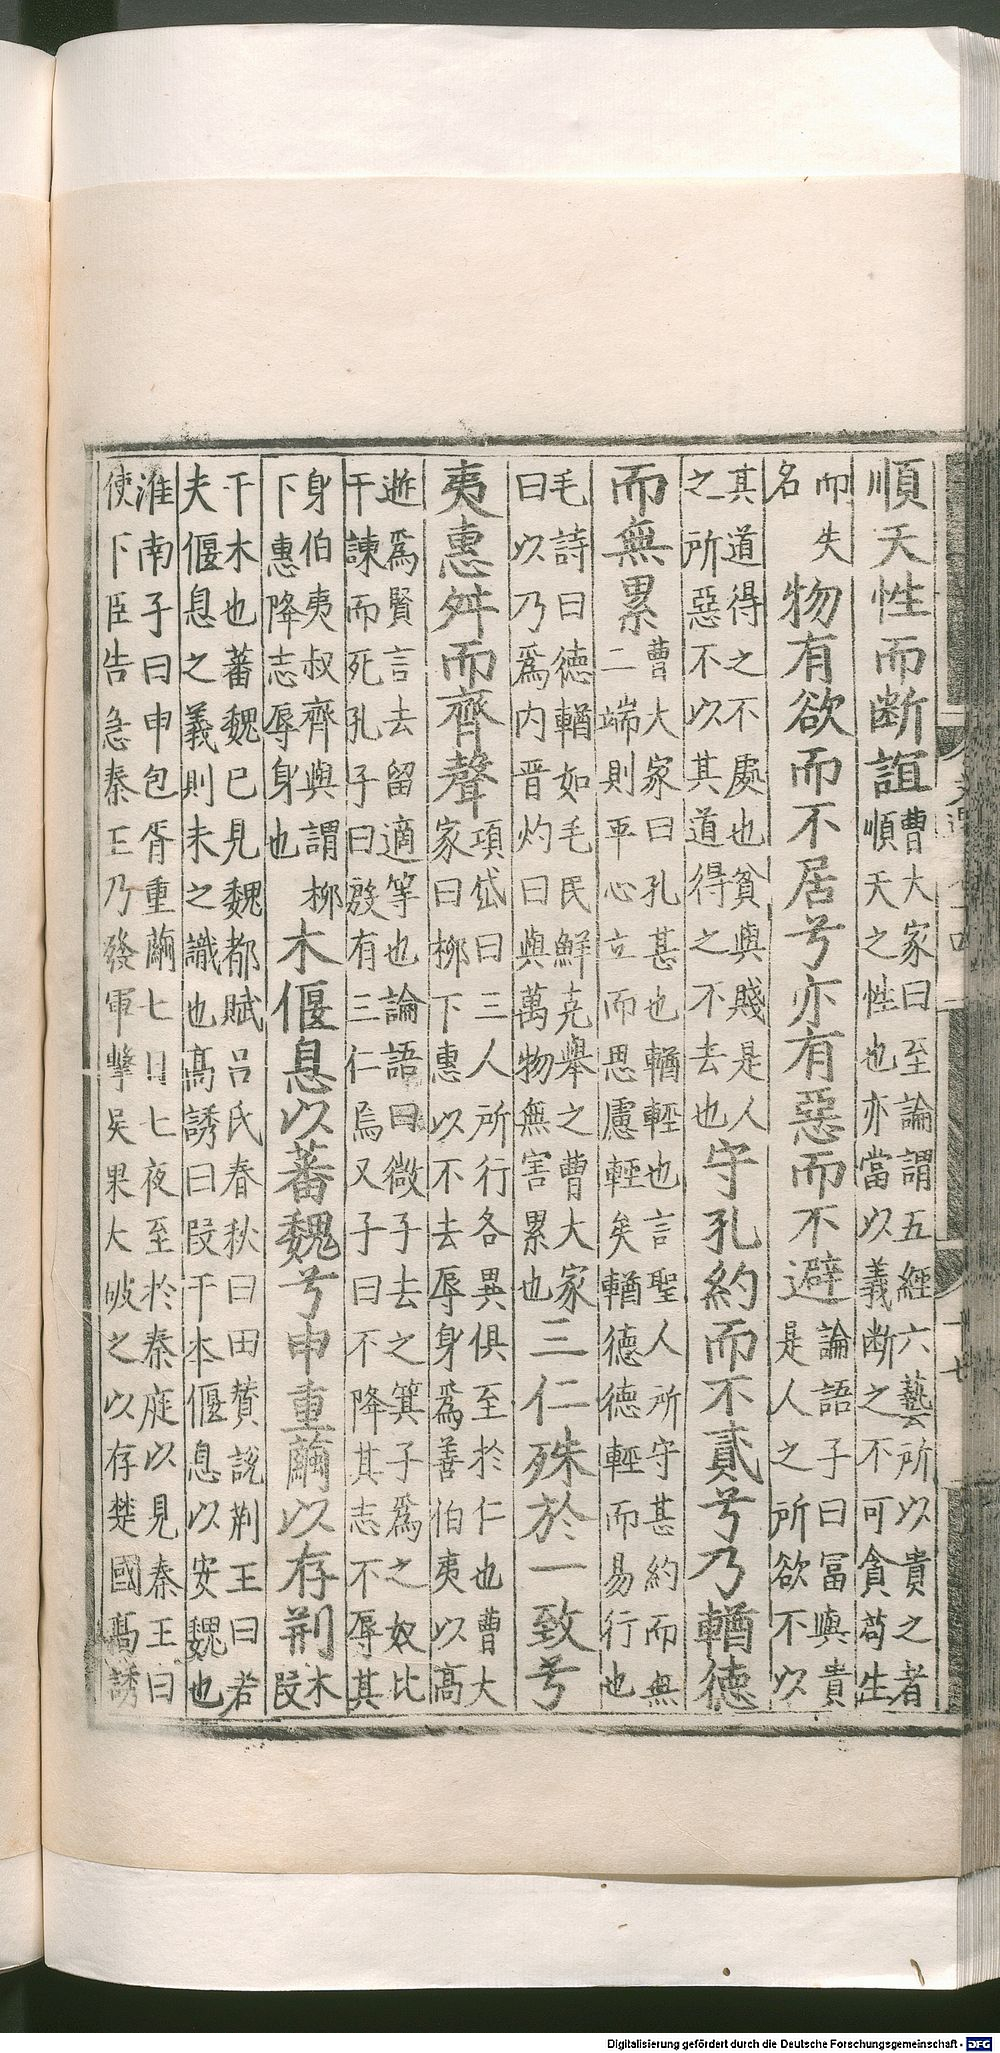 順天性而斷誼
曹大家曰至論謂五經六藝所以貴之者
順天之性也亦當以義斷之不可貪苟生
而失
名
物有欲而不居兮亦有惡而不避
論語子曰冨與貴
是人之所欲不以
其道得之不處也貧與賤是人
之所惡不以其道得之不去也
守孔約而不貳兮乃輶德
而無累
曹大家曰孔甚也輶輕也言聖人所守甚約而無
二端則平心立而思慮輕矣輶德德輕而易行也
毛詩曰德輶如毛民鮮克舉之曹大家
曰以乃爲内晋灼曰與萬物無害累也
三仁殊於一致兮
夷惠舛而齊聲
項岱曰三人所行各異俱至於仁也曹大
家曰柳下惠以不去辱身爲善伯夷以高
逝爲賢言去留適等也論語曰微子去之箕子爲之奴比
干諫而死孔子曰殷有三仁焉又子曰不降其志不辱其
身伯夷叔齊與謂柳
下惠降志辱身也
木偃息以蕃魏兮申重繭以存荊
木
段
干木也蕃魏已見魏都賦吕氏春秋曰田賛説荊王曰若
夫偃息之義則未之識也高誘曰段干本偃息以安魏也
淮南子曰申包胥重繭七日七夜至於秦庭以見秦王曰
使下臣告急秦王乃發軍擊吳果大破之以存楚國高誘
Digitalisierung gefördert durch die Deutsche Forschungsgemeinschaft - DFG